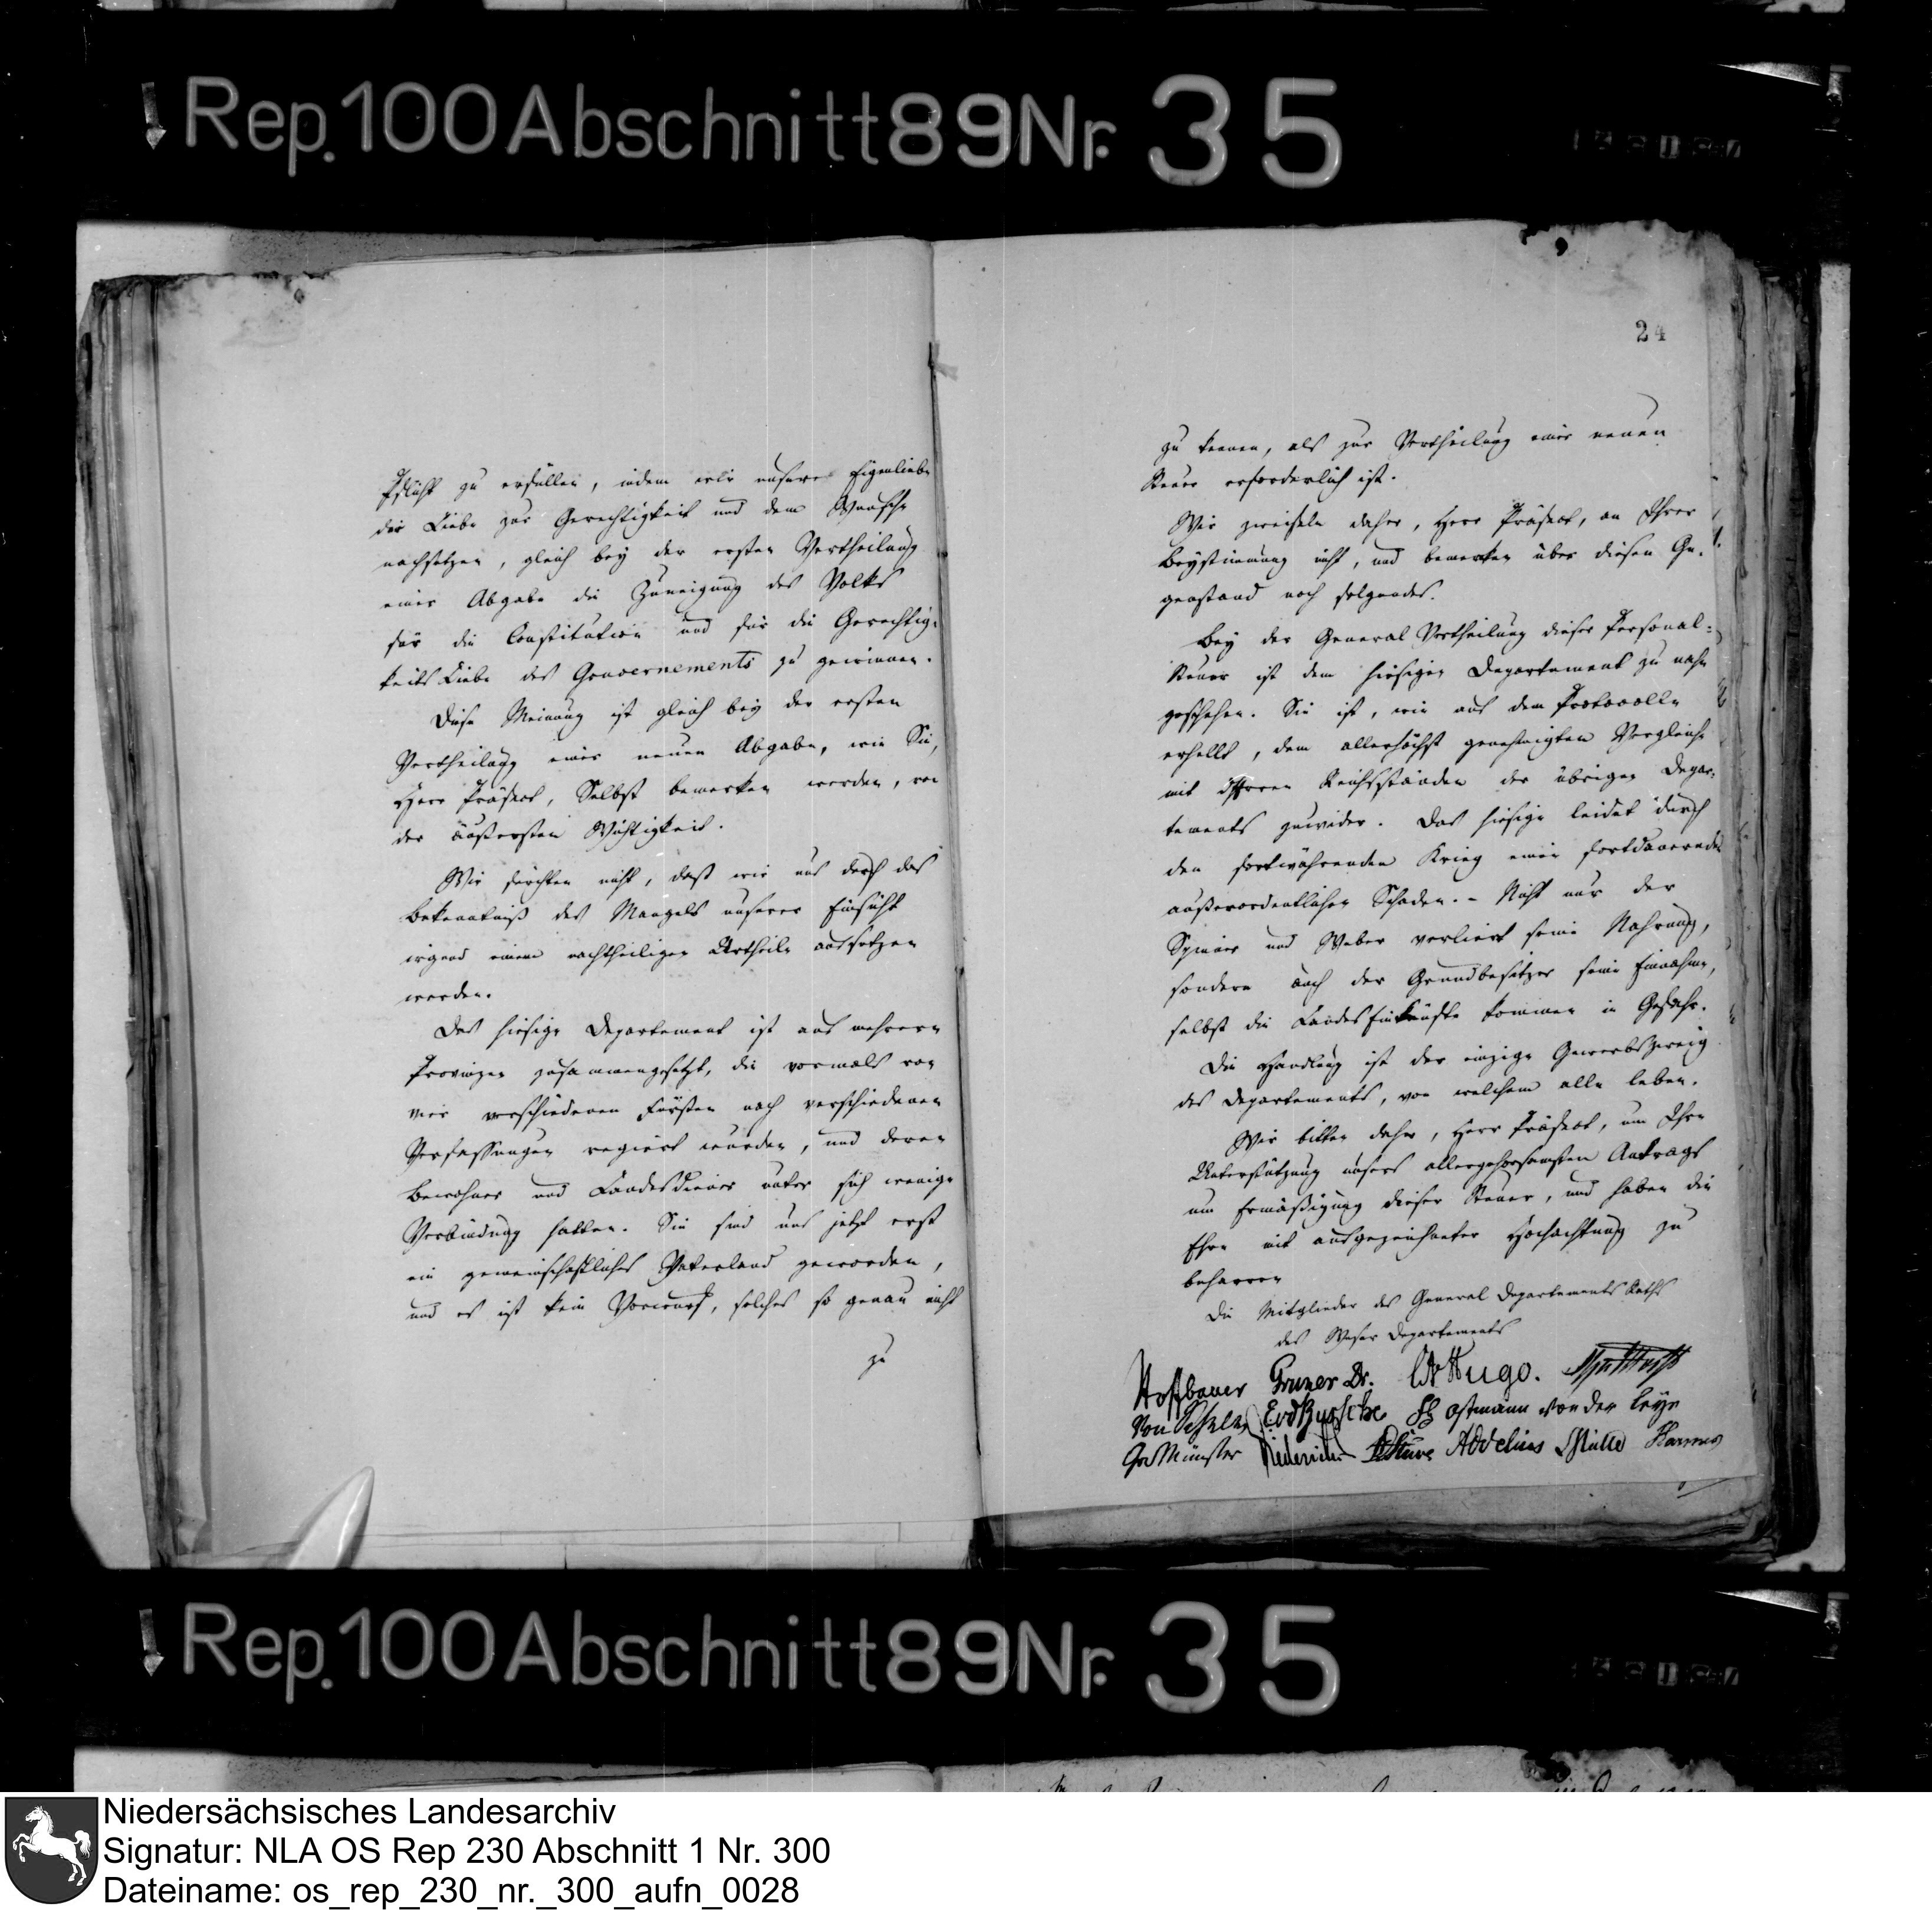 Rep. 100 Abschnitt 89 Nr. 35
Pflicht zu erfüllen, indem wir unsere Eigenliebe
der Liebe zur Gerechtigkeit und dem Wunsche
nachsetzen, gleich bey der ersten Vertheilung
einer Abgabe die Zuneigung des Volks
für die Constitution und für die Gerechtig-
keits Liebe des Gouvernements zu gewinnen.
Diese Meinung ist gleich bey der ersten
Vertheilung einer neuen Abgabe, wie Sie,
Herr Präfect, Selbst bemerken werden, von
der äußersten Wichtigkeit.
Wir fürchten nicht, daß wir uns durch das
Bekenntniß des Mangels unserer Einsicht
irgend einem nachtheiligen Urtheile aussetzen
werden.
Das hiesige Departement ist aus mehrern
Provinzen zusammengesetzt, die vormals von
vier verschiedenen Fürsten nach verschiedenen
Verfassungen regiert wurden, und deren
Bewohner und Landesdiener unter sich wenige
Verbindung hatten. Sie sind uns jetzt erst
ein gemeinschaftliches Vaterland geworden,
und es ist kein Vorwurf, solches so genau nicht
zu
24
zu kennen, als zur Vertheilung einer neuen
Steuer erforderlich ist.
Wir zweifeln daher, Herr Präfect, an Ihrer
Beystimmung nicht, und bemerken über diesen Ge-
genstand noch folgendes.
Bey der General Vertheilung dieser Personal-
Steuer ist dem hiesigen Departement zu nahe
geschehen. Sie ist, wie aus dem Protocolle
erhellt, dem allerhöchst genehmigten Vergleiche
mit Reichsständen der übrigen Depar-
tements zuwider. Das hiesige leidet durch
den fortwährenden Krieg einen fortdauernden
außerordentlichen Schaden. - Nicht nur der
Spinner und Weber verliert seine Nahrung,
sondern auch der Grundbesitzer seine Einnahme,
selbst die Landes Einkünfte kommen in Gefahr.
Die Handlung ist der einzige Gewerbszweig
des Departements, von welchem alle leben.
Wir bitten daher, Herr Präfect, um Ihre
Unterstützung unsers allergehorsamsten Antrags
um Ermäßigung dieser Steuer, und haben die
Ehre mit ausgezeichneter Hochachtung zu
beharren
Die Mitglieder des General Departements Raths
des Weser Departements
Hoffbauer Gruner Dr. Hugo.
von Ostmann von der Leye
Gr Münster Stüve Abdelius Müller Harmes
Rep. 100 Abschnitt 89 Nr. 35
Niedersächsisches Landesarchiv
Signatur: NLA OS Rep 230 Abschnitt 1 Nr. 300
Dateiname: os_rep_230_nr._300_aufn_0028